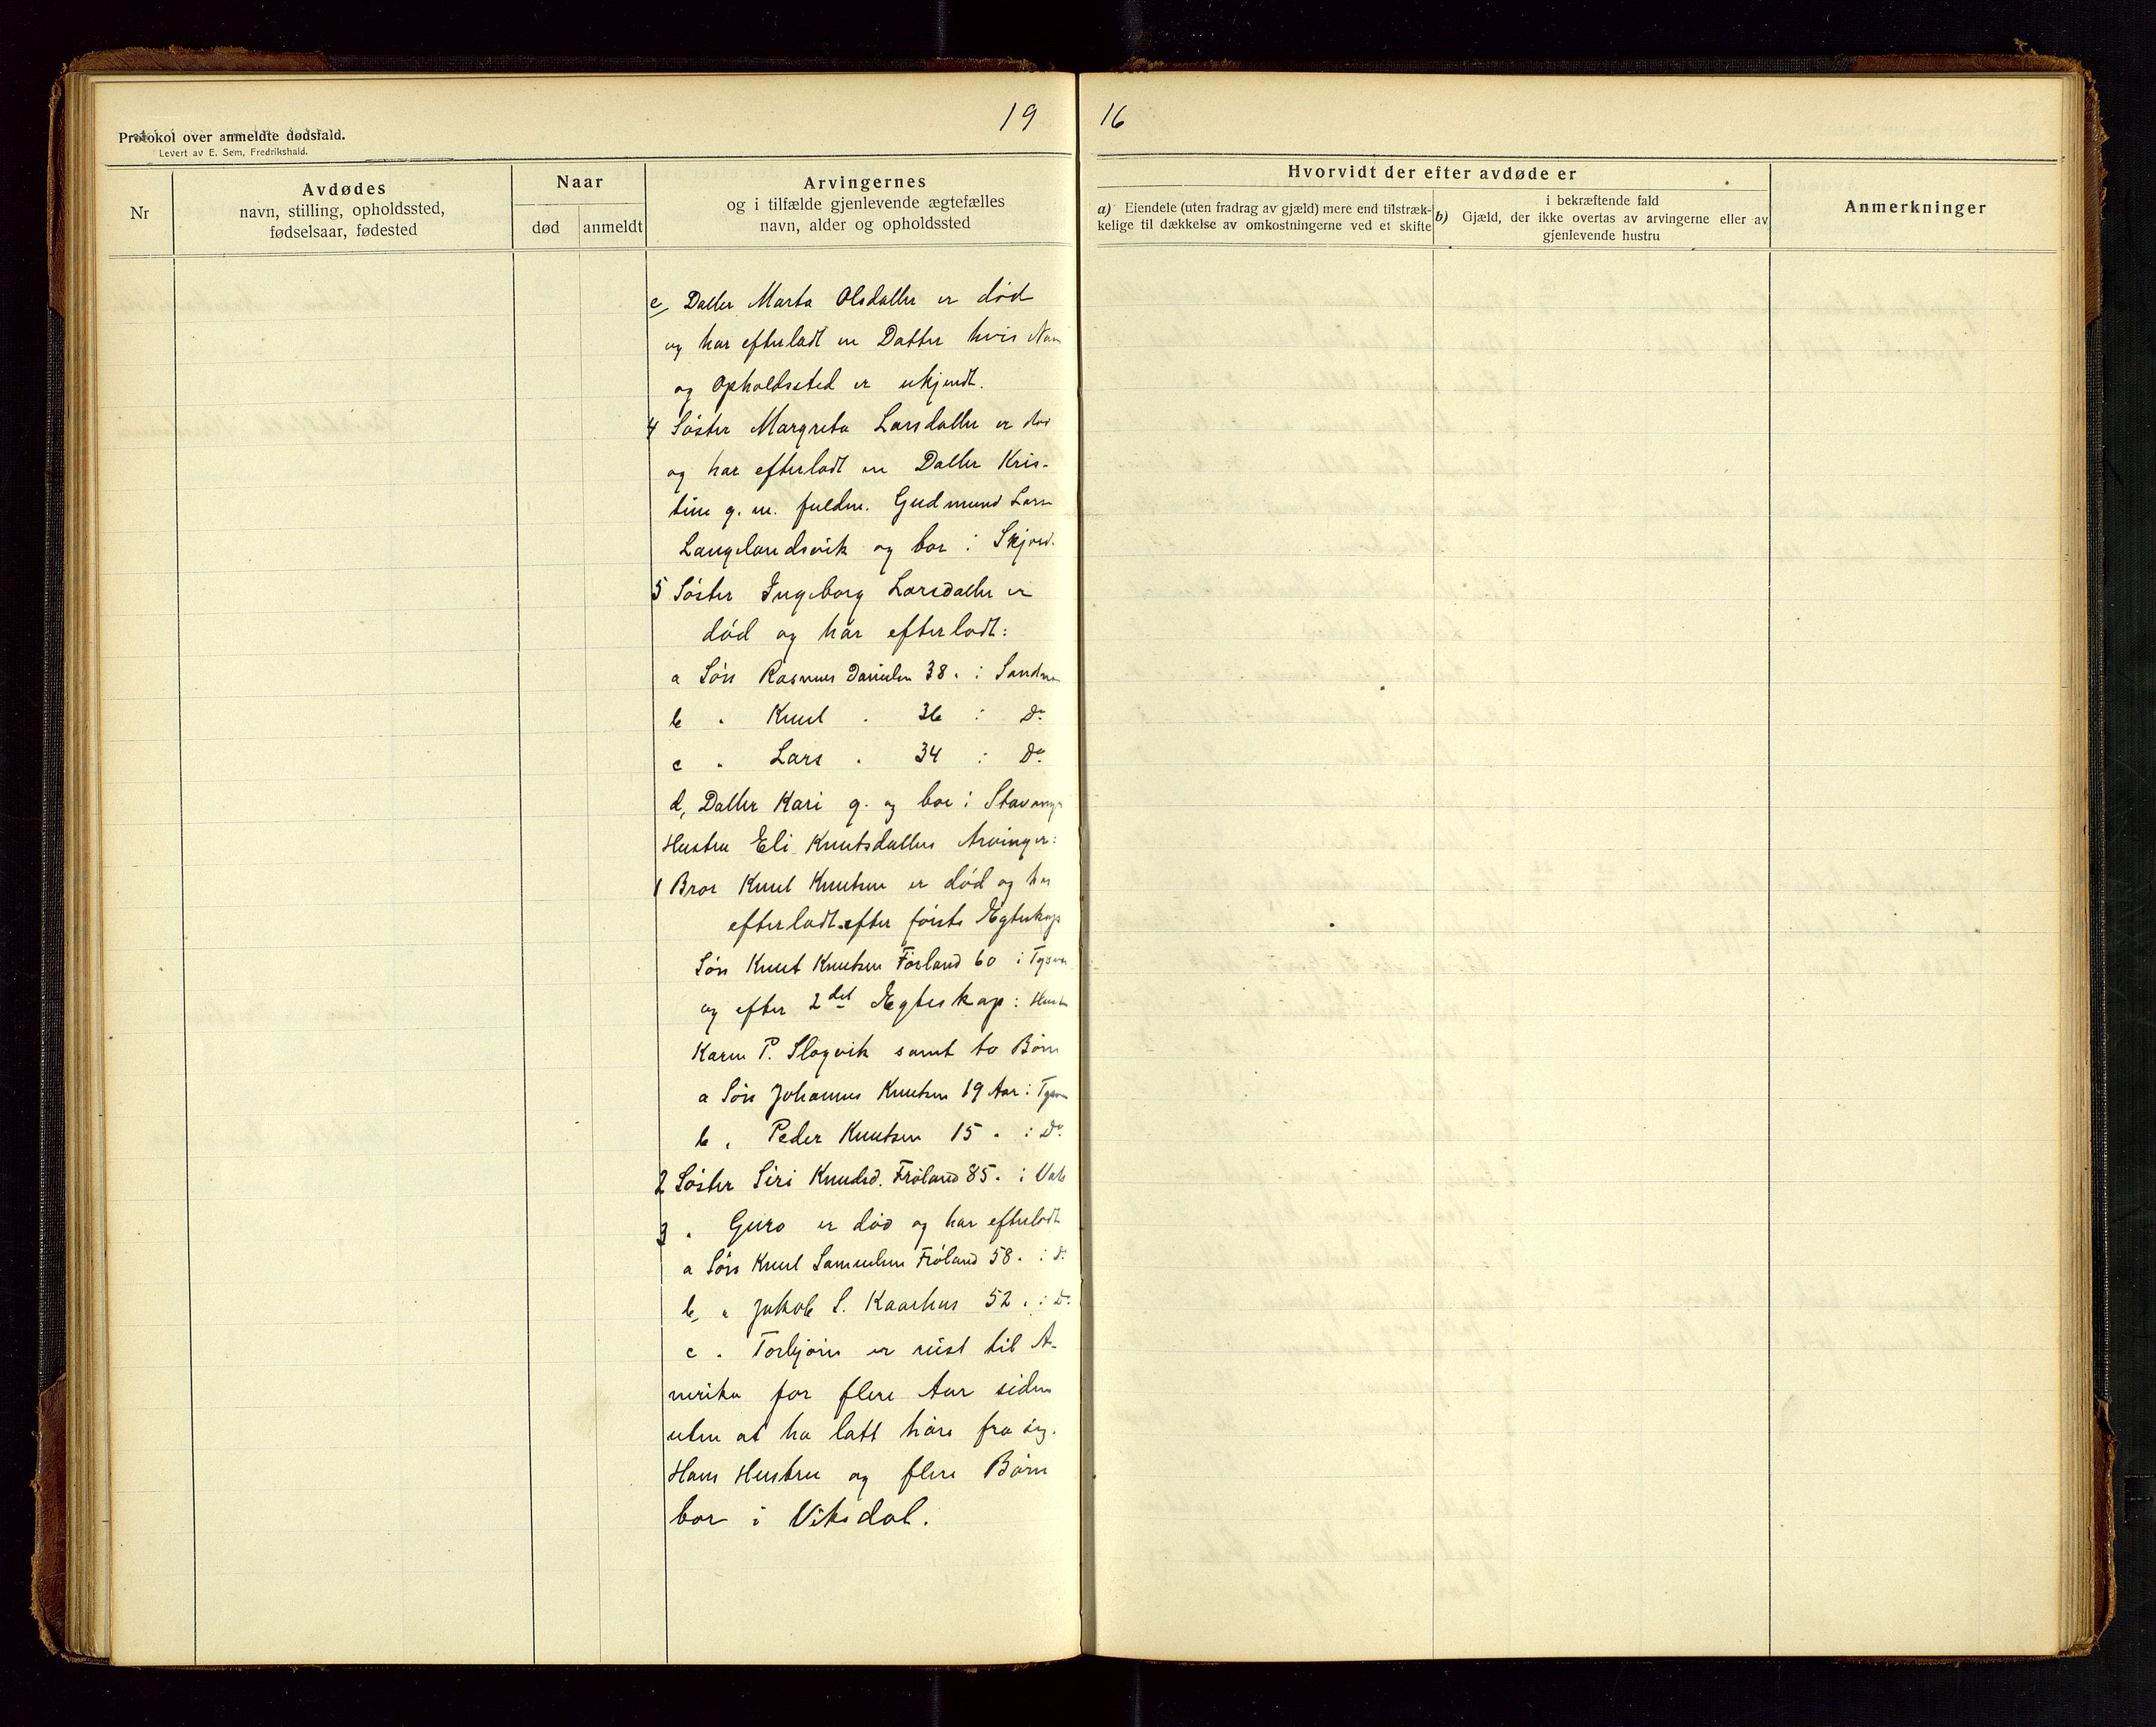 19
16
Protokol over anmeldte dødsfald.
Levert av E. Sem, Fredrikshald.
Nr
Avdødes
navn, stilling, opholdssted,
fødselsaar, fødested
Naar
død
anmeldt
Arvingernes
og i tilfælde gjenlevende ægtefælles
navn, alder og opholdssted
Hvorvidt der efter avdøde er
a) Eiendele (uten fradrag av gjæld) mere end tilstræk-
kelige til dækkelse av omkostningerne ved et skifte
i bekræftende fald
b) Gjæld, der ikke overtas av arvingerne eller av
gjenlevende hustru
Anmerkninger
c, Datter Marta Olsdatter er död
og har efterladt en Datter hvis Nav
og Opholdssted er ukjendt.
4 Söster Margreta Larsdatter er död
og har efterladt en Datter Kris-
tine g. m. fuldm. Gudmund Larsen
Langelandsvik og bor i Skjold.
5 Söster Ingeborg Larsdatter er
död og har efterladt:
a Sön Rasmus Danielsen 38 . i Sandnes
b . Knut . 36 i Do
c . Lars . 34 i Do
d, Datter Kari g. og bor i Stavanger
Hustru Eli Knutsdatters Arvinger:
1 Bror Knut Knutsen er död og har
efterladt efter förste Egteskap
Sön Knut Knutsen Förland 60 i Tysvær
og efter 2det Egteskap: Hustru
Karen P. Slogvik samt to Börn
a Sön Johannes Knutsen 19 Aar i Tysvær
b . Peder Knutsen 15 . i Do
2 Söster Siri Knudsd. Fröland 85 . i Vats
3 . Guro er död og har efterladt
a Sön Knut Samuelsen Fröland 58 . i Do
b, . Jakob S. Kaarhus 52 . i Do
c . Torbjörn er reist til A-
merika for flere Aar siden
uten at ha latt höre fra sig.
Hans Hustru og flere Börn
bor i Vikedal.